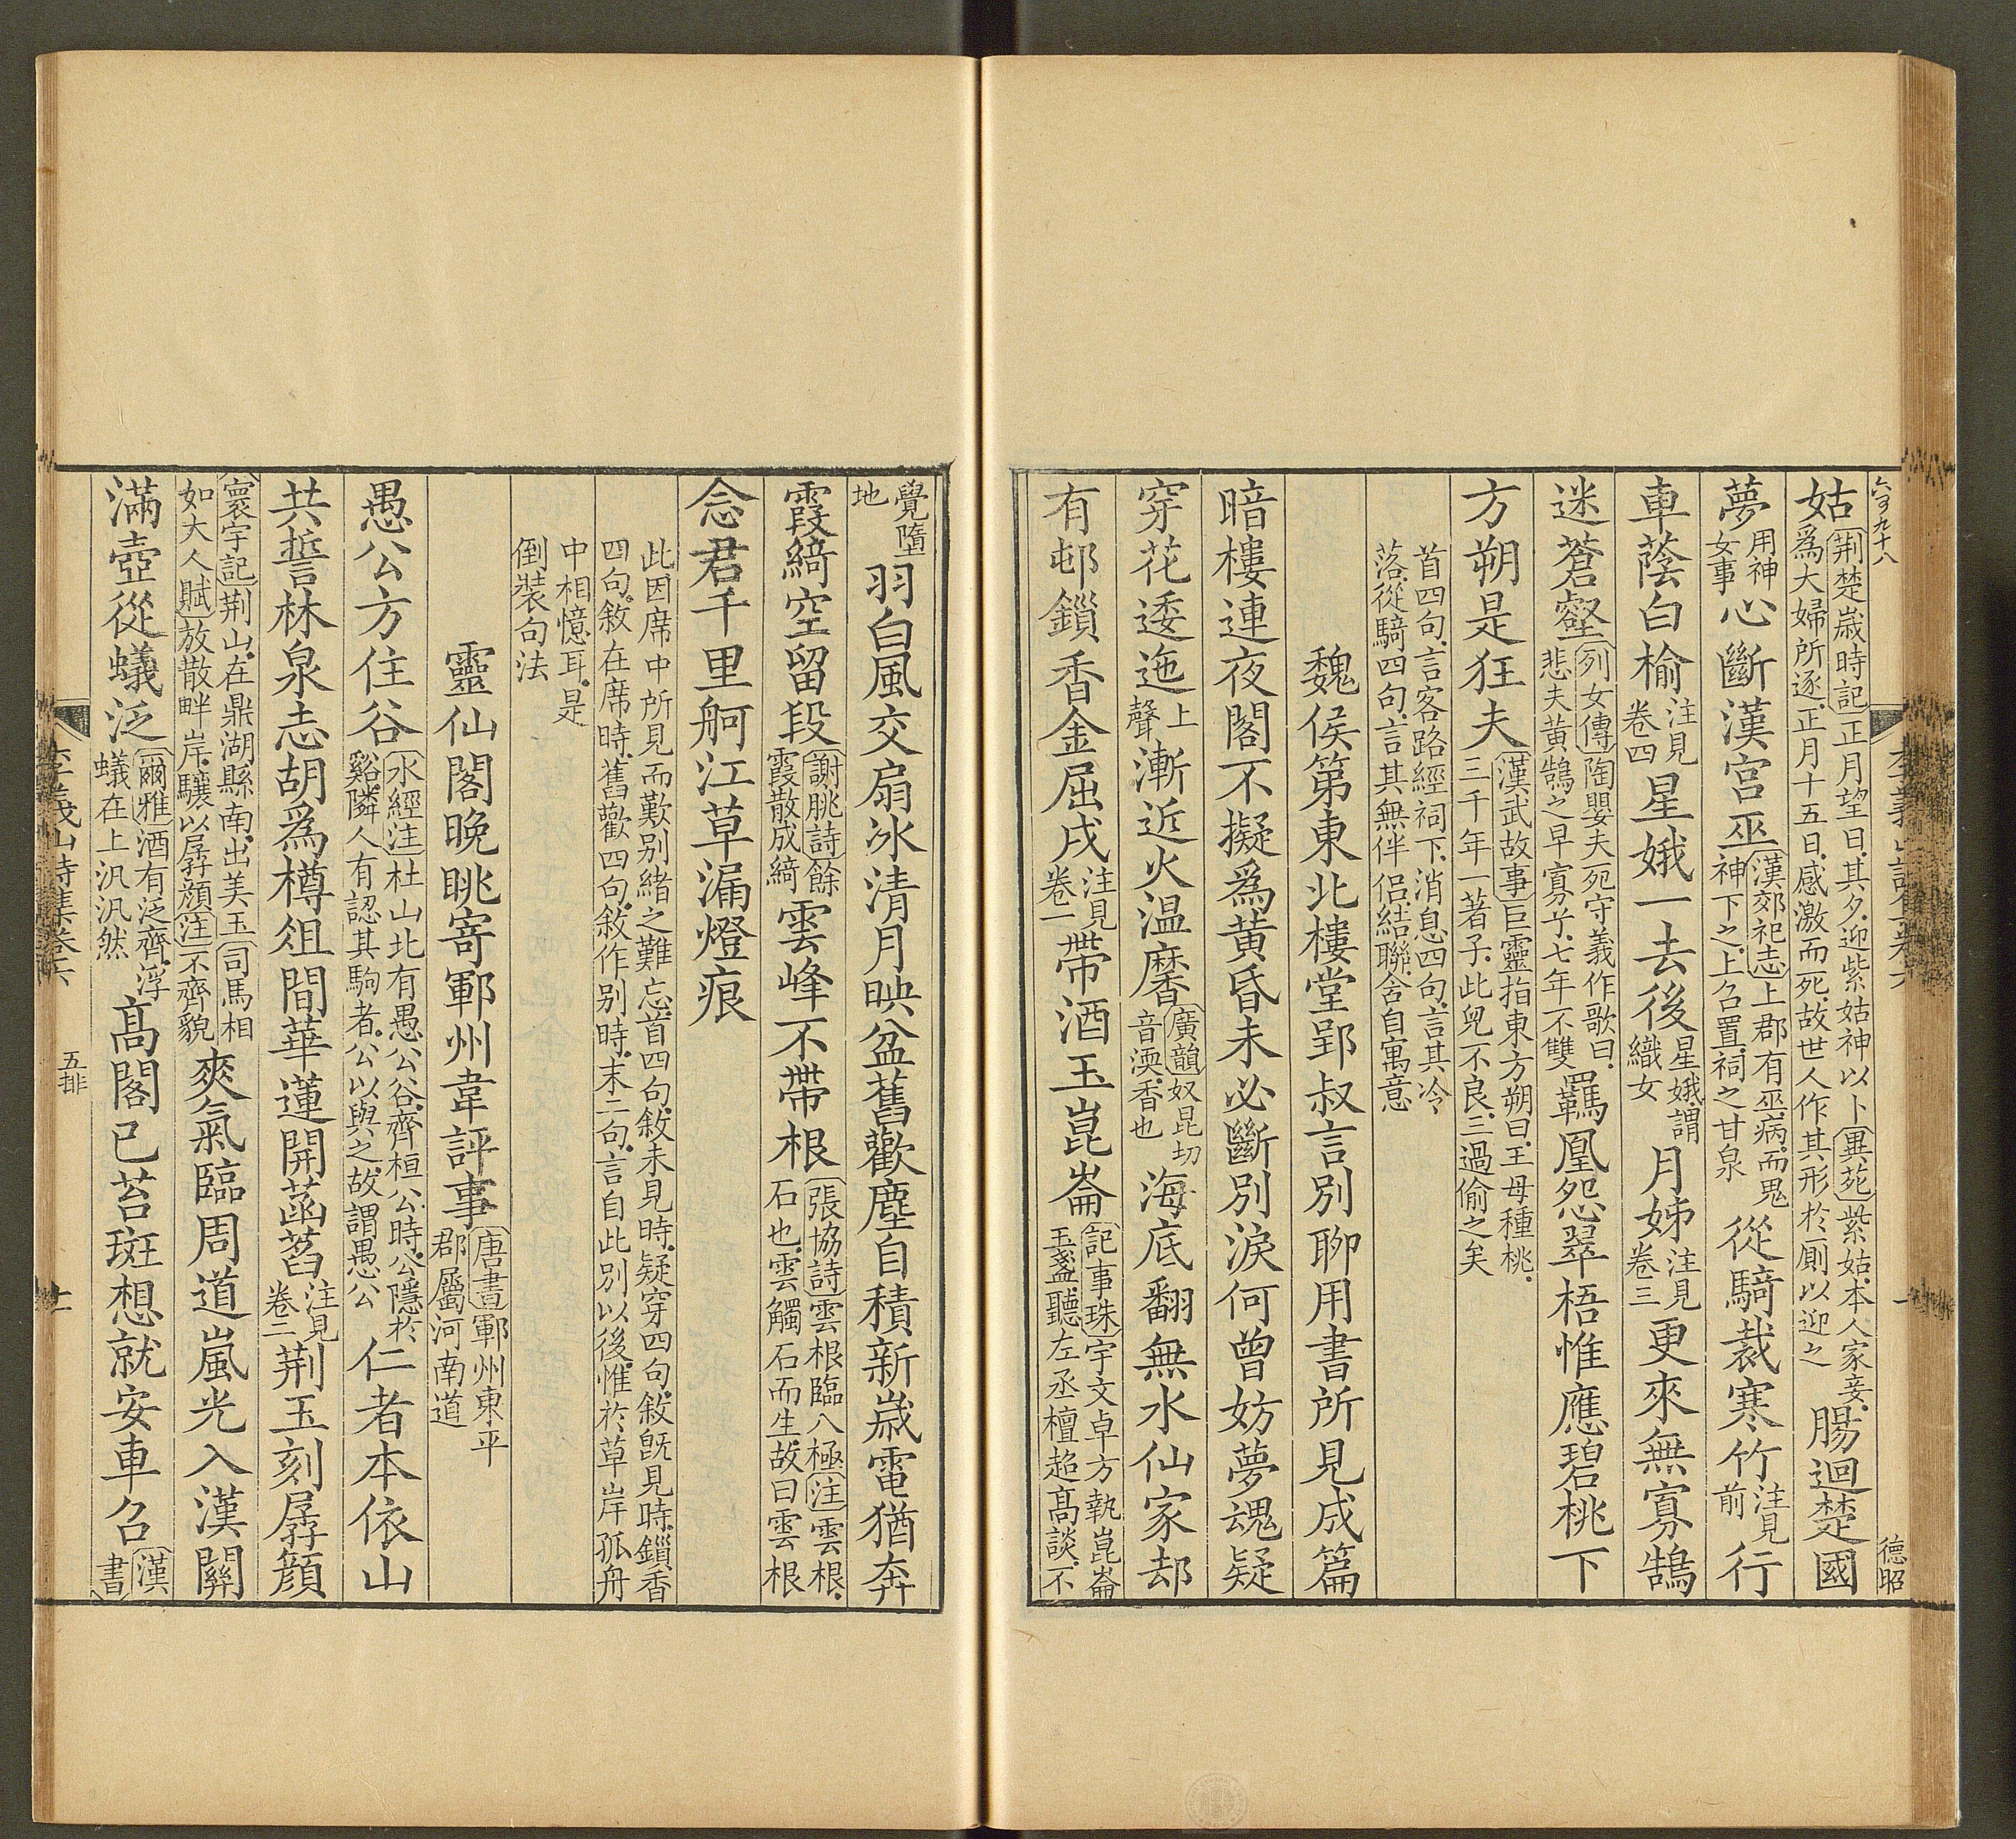 六百九十八 李義山詩集卷六 一 德昭
姑荆楚歳時記正月望日其夕迎紫姑神以卜異苑紫姑本人家妾爲大婦所逐正月十五日感激而死故世人作其形於厠以迎之腸迴楚國
夢用神女事心斷漢宮巫漢郊祀志上郡有巫病而鬼神下之上召置祠之甘泉從騎裁寒竹注見前行
車蔭白榆注見卷四星娥一去後星娥謂織女月姊注見卷三更來無寡鵠
迷蒼壑列女傳陶嬰夫死守義作歌曰悲夫黄鵠之早寡兮七年不雙羈凰怨翠梧惟應碧桃下
方朔是狂夫漢武故事巨靈指東方朔曰王母種桃三千年一著子此兒不良三過偷之矣
首四句言客路經祠下消息四句言其冷落從騎四句言其無伴侣結聯含自寓意
魏侯第東北樓堂郢叔言別聊用書所見成篇
暗樓連夜閣不擬爲黄昏未必斷別淚何曾妨夢魂疑
穿花逶迤上聲漸近火温黁廣韻奴昆切音渜香也海底翻無水仙家却
有邨鎖香金屈戌注見卷一帶酒玉崑崙記事珠宇文卓方執崑崙玉盞聽左丞檀超高談不
覺墮地羽白風交扇冰清月映盆舊歡塵自積新歳電猶奔
霞綺空留段謝朓詩餘霞散成綺雲峰不帶根張協詩雲根臨八極注雲根石也雲觸石而生故曰雲根
念君千里舸江草漏燈痕
此因席中所見而歎別緒之難忘首四句敘未見時疑穿四句敘既見時鎖香四句敘在席時舊歡四句敘作别時末二句言自此别以後惟於草岸孤舟
中相憶耳是倒裝句法
靈仙閣晚眺寄鄆州韋評事唐書鄆州東平郡屬河南道
愚公方住谷水經注杜山北有愚公谷齊桓公時公隱於谿隣人有認其駒者公以與之故謂愚公仁者本依山
共誓林泉志胡爲樽俎間華蓮開菡萏注見卷二荆玉刻孱顔
寰宇記荆山在鼎湖縣南出美玉司馬相如大人賦放散畔岸驤以孱顔注不齊貌爽氣臨周道嵐光入漢關
滿壺從蟻泛爾雅酒有泛齊浮蟻在上汎汎然高閣已苔斑想就安車召漢書
李義山詩集卷六 五排 十一